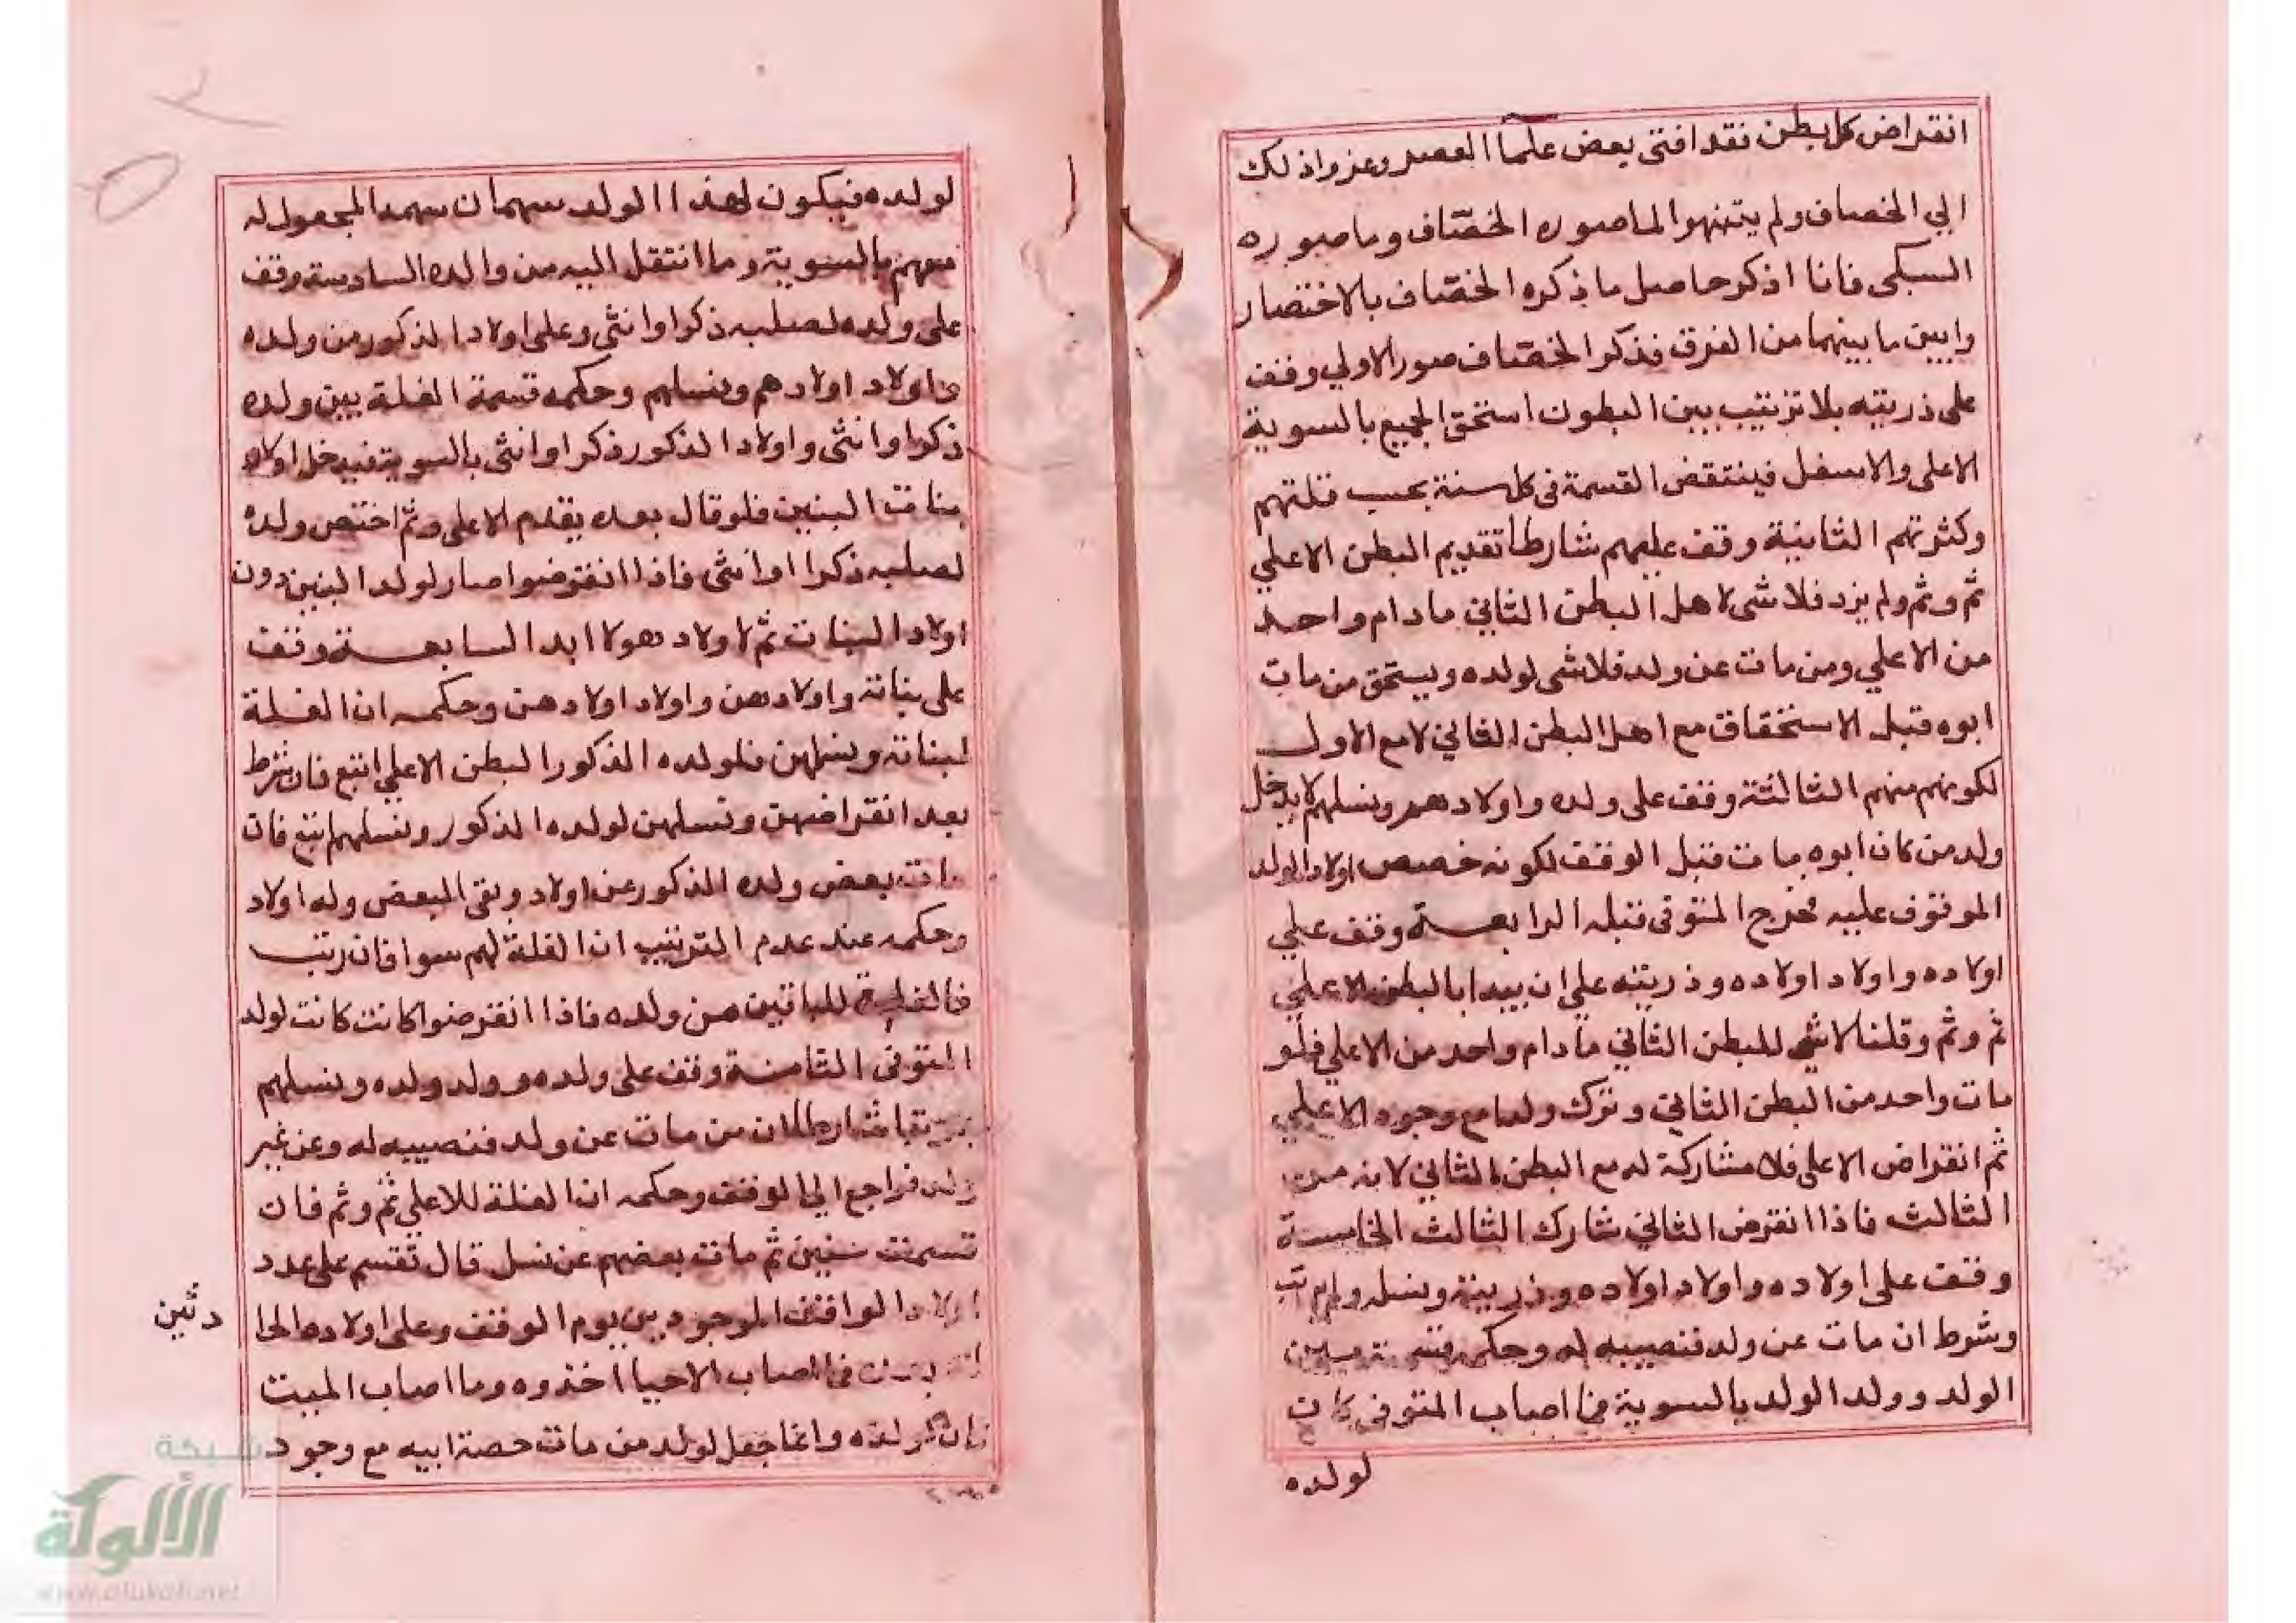 انقراض كل بطن نقد افتى بعض علما العصر وعزوا ذلك
الي الخصاف ولم يتنبهوا لما صوره الخصّاف وما صوره
السبكى فانا اذكر حاصل ما ذكره الخصّاف بالاختصار
وابين ما بينهما من الفرق فذكر الخصّاف صور الاولي وقف
على ذريته بلا ترتيب بين البطون استحق الجميع بالسوية
الاعلى والاسفل فينتقض القسمة فى كل سنة بحسب قلتهم
وكثرتهم الثانية وقف عليهم شارطا تقديم البطن الاعلي
ثم وثم ولم يزد فلا شى لاهل البطن الثاني مادام واحد
من الاعلي ومن مات عن ولد فلا شى لولده ويستحق من مات
ابوه قبل الاستحقاق مع اهل البطن الثاني لا مع الاول
لكونهم منهم الثالثة وقف على ولده واولادهم ونسلهم لا يدخل
ولد من كان ابوه مات قبل الوقف لكونه خصص اولاد الولد
الموقوف عليه فخرج المتوفى قبله الرابعة وقف علي
اولاده واولاد اولاده وذريته علي ان يبدا بالبطن الاعلي
ثم وثم وقلنا لا شى للبطن الثاني مادام واحد من الاعلي فلو
مات واحد من البطن الثاني وترك ولدا مع وجود الاعلي
ثم انقراض الاعلى فلا مشاركة له مع البطن الثاني لانه من
الثالث فاذا انقرض الثاني شارك الثالث الخامسة
وقف على اولاده واولاد اولاده وذريته ونسله ولم يرتب
وشرط ان مات عن ولد فنصيبه له وحكمه قسمته بين
الولد وولد الولد بالسوية فما اصاب المتوفى كان
لولده
لولده فيكون لهذا الولد سهمان سهمه المجعول له
معهم بالسوية وما انتقل اليه من والده السادسة وقف
على ولده لصلبه ذكرا وانثى وعلى اولاد الذكور من ولده
واولاد اولادهم ونسلهم وحكمه قسمة الغلة بين ولده
ذكرا وانثى واولاد الذكور ذكرا وانثى بالسوية فيدخل اولاد
بنات البنين فلو قال بعده يقدم الاعلى وثم اختص ولده
لصلبه ذكرا او انثى فاذا انقرضوا صار لولد البنين دون
اولاد البنات ثم لاولاد هولا ابدا السابعة وقف
على بناته واولادهن واولاد اولادهن وحكمه ان الغلة
لبناته ونسلهن فلو لده الذكور البطن الاعلي اتبع فان شرط
بعد انقراضهن ونسلهن لولده الذكور ونسلهم اتبع فان
مات بعض ولده الذكور عن اولاد وبقى البعض وله اولاد
وحكمه عند عدم الترتيب ان الغلة لهم سوا فان رتب
فالغلة للباقين من ولده فاذا انقرضوا كانت كانت لولد
المتوفى الثامنة وقف على ولده وولد ولده ونسلهم
مرتبا شارطا ان من مات عن ولد فنصيبه له وعن غير
ولد فراجع الي الوقف وحكمه ان الغلة للاعلي ثم وثم فان
قسمت سنين ثم مات بعضهم عن نسل قال تقسم على عدد
اولاد الواقف الموجودين يوم الوقف وعلى اولاده الحا
دثين
فما اصاب الاحيا اخذوه وما اصاب الميت
كان لولده وانما جعل لولد من مات حصة ابيه مع وجود
شبكة
الألوكة
www.alukah.net